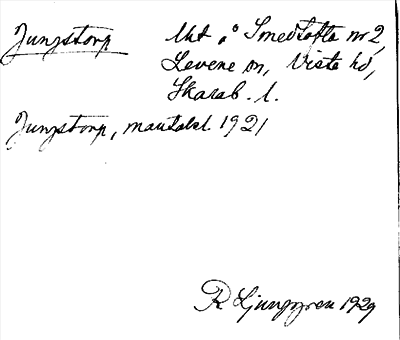 Jungstorp Urt å Smedtofta nr 2,
Levene sn, Viste hd,
Skarab. l.
Jungstorp, mantalsl. 1921
R Ljunggren 1929